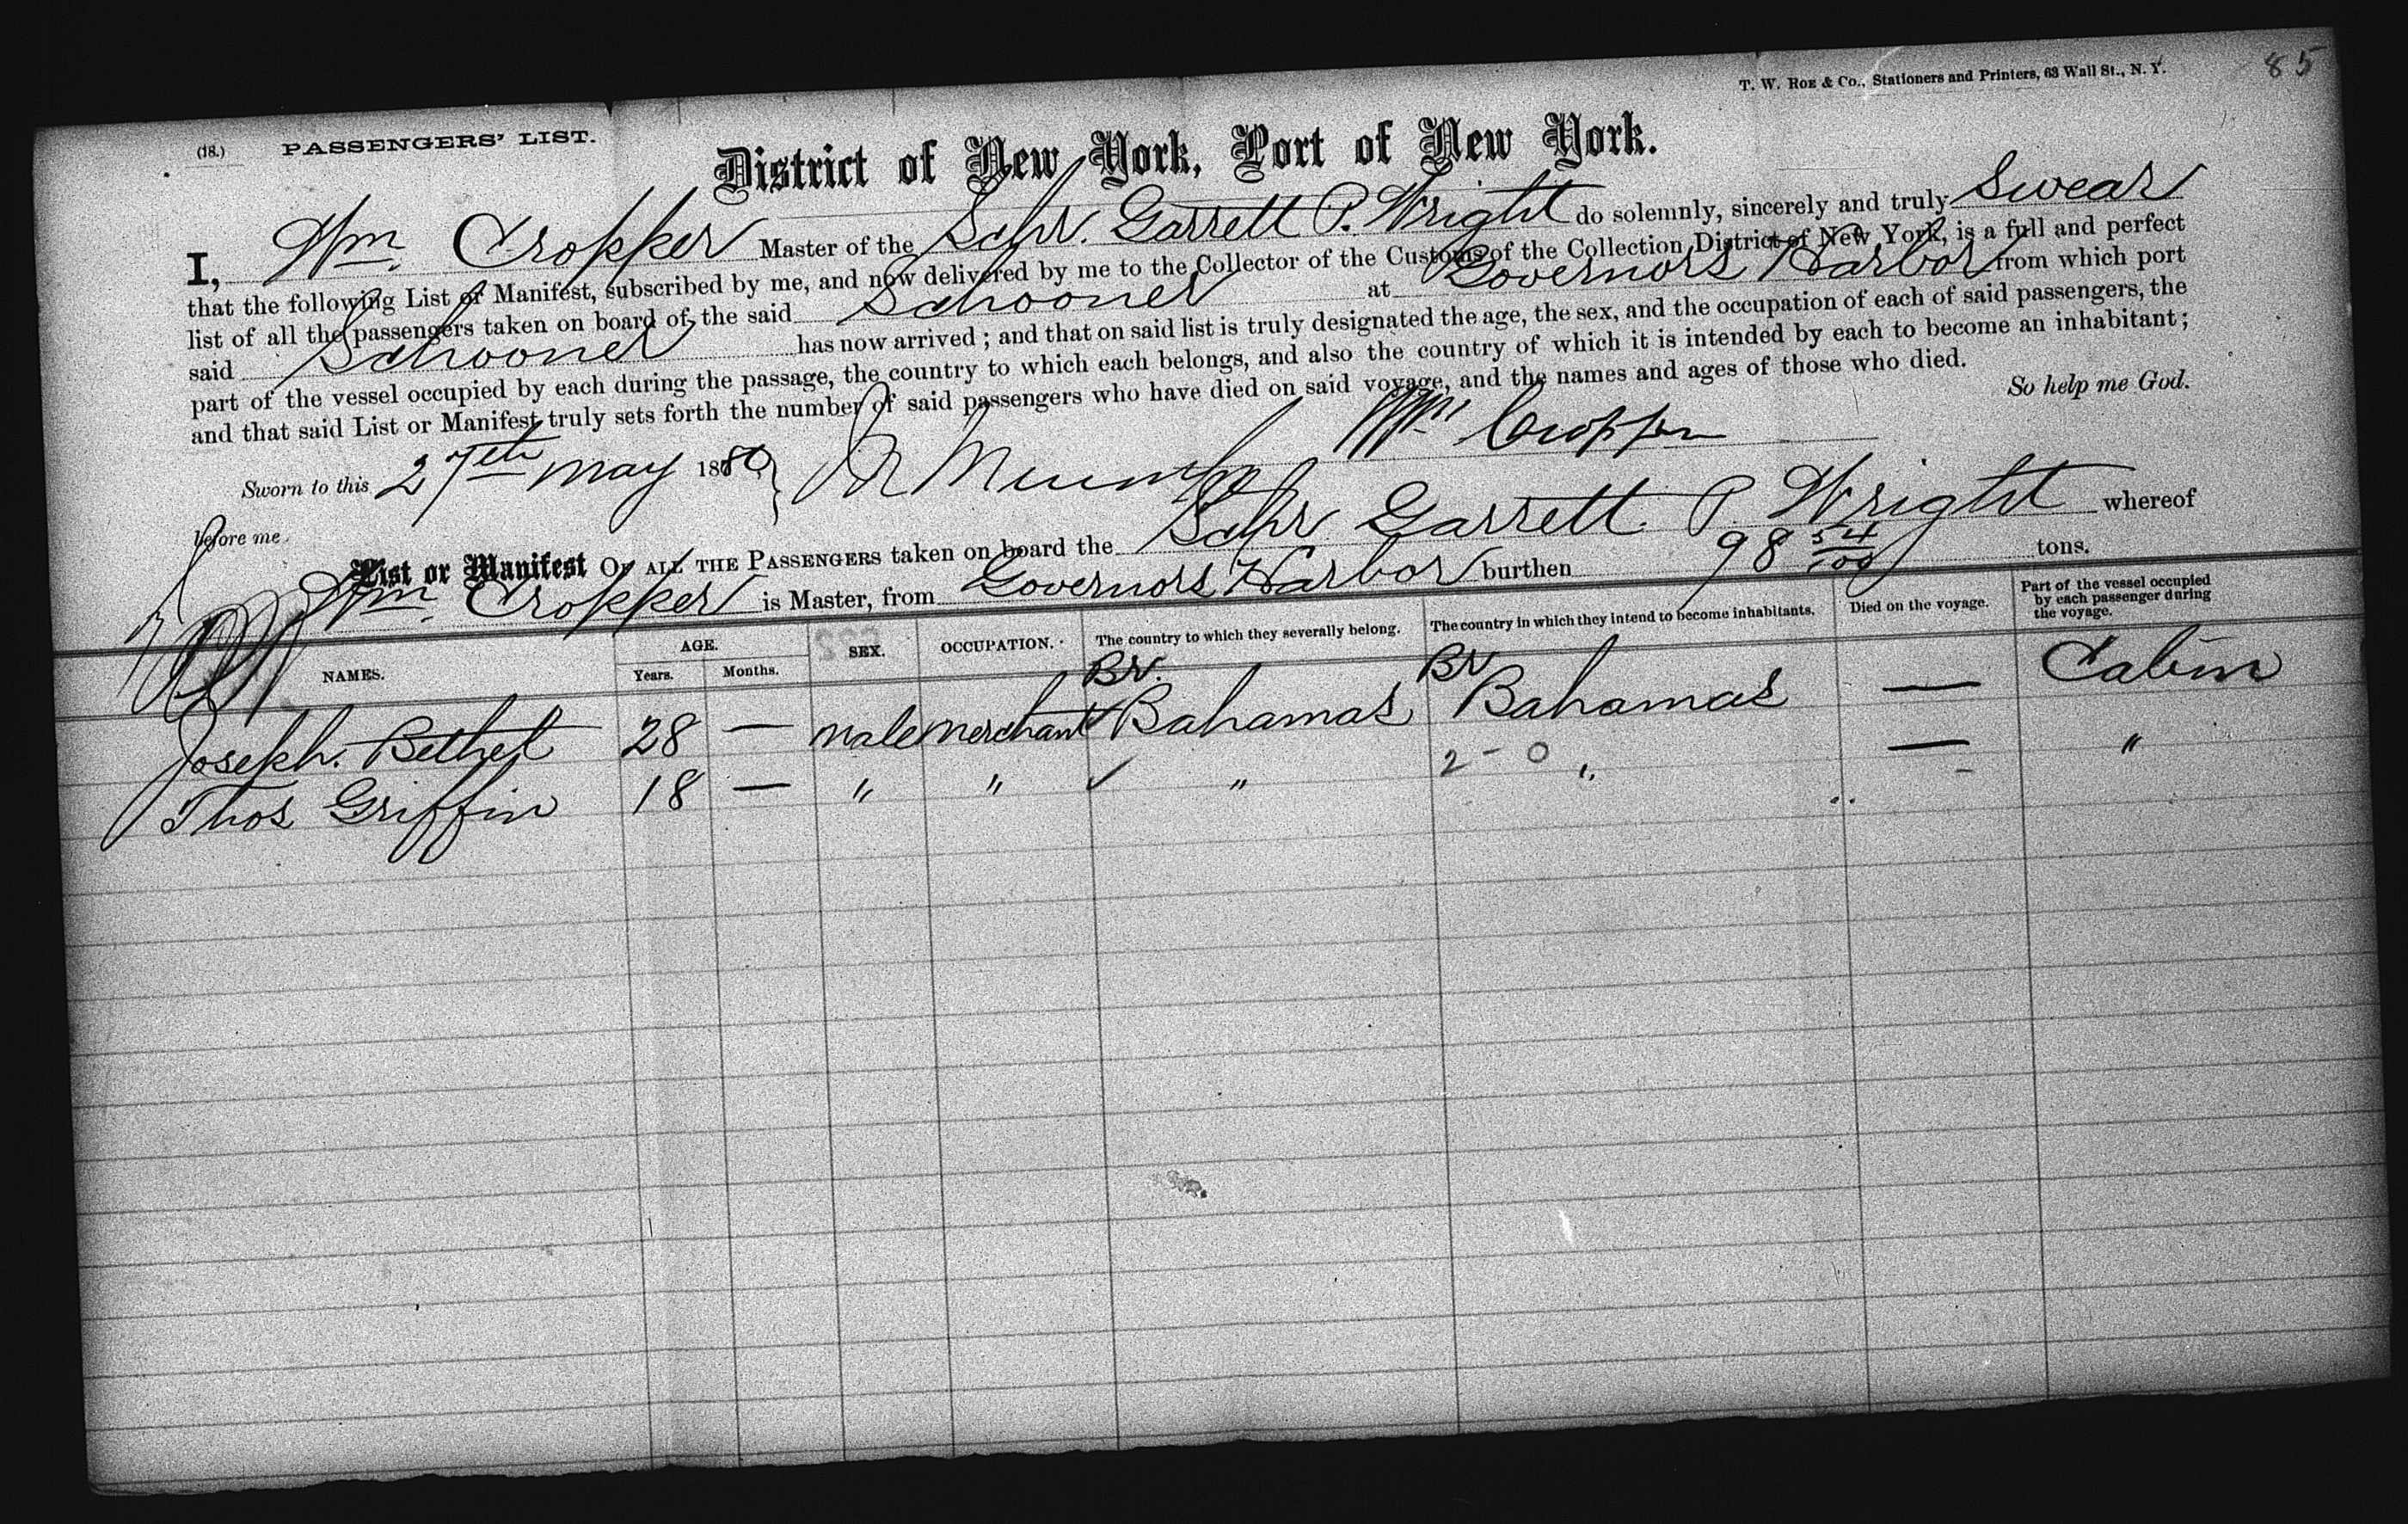 85
T. W. Roe & Co., Stationers and Printers, 63 Wall St., N. Y.
(18.) PASSENGERS' LIST.
District of New York, Port of New York.
I, Wm. Cropper Master of the Schr. Garrett P. Wright do solemnly, sincerely and truly Swear
that the following List or Manifest, subscribed by me, and now delivered by me to the Collector of the Customs of the Collection District of New York, is a full and perfect
list of all the passengers taken on board of the said Schooner at Governors Harbor from which port
said Schooner has now arrived; and that on said list is truly designated the age, the sex, and the occupation of each of said passengers, the
part of the vessel occupied by each during the passage, the country to which each belongs, and also the country of which it is intended by each to become an inhabitant;
and that said List or Manifest truly sets forth the number of said passengers who have died on said voyage, and the names and ages of those who died.
So help me God.
Wm Cropper
Sworn to this 27th May 1880
before me
List or Manifest OF ALL THE PASSENGERS taken on board the Schr Garrett P. Wright whereof
Wm. Cropper is Master, from Governors Harbor burthen 98 54/100 tons.
NAMES. AGE. Years. Months. SEX. OCCUPATION. The country to which they severally belong. The country in which they intend to become inhabitants. Died on the voyage. Part of the vessel occupied by each passenger during the voyage.
Br. Br
Joseph. Bethel 28 — male merchant ✓ Bahamas Bahamas — Cabin
Thos Griffin 18 — " " ✓ " 2 - 0 " — "